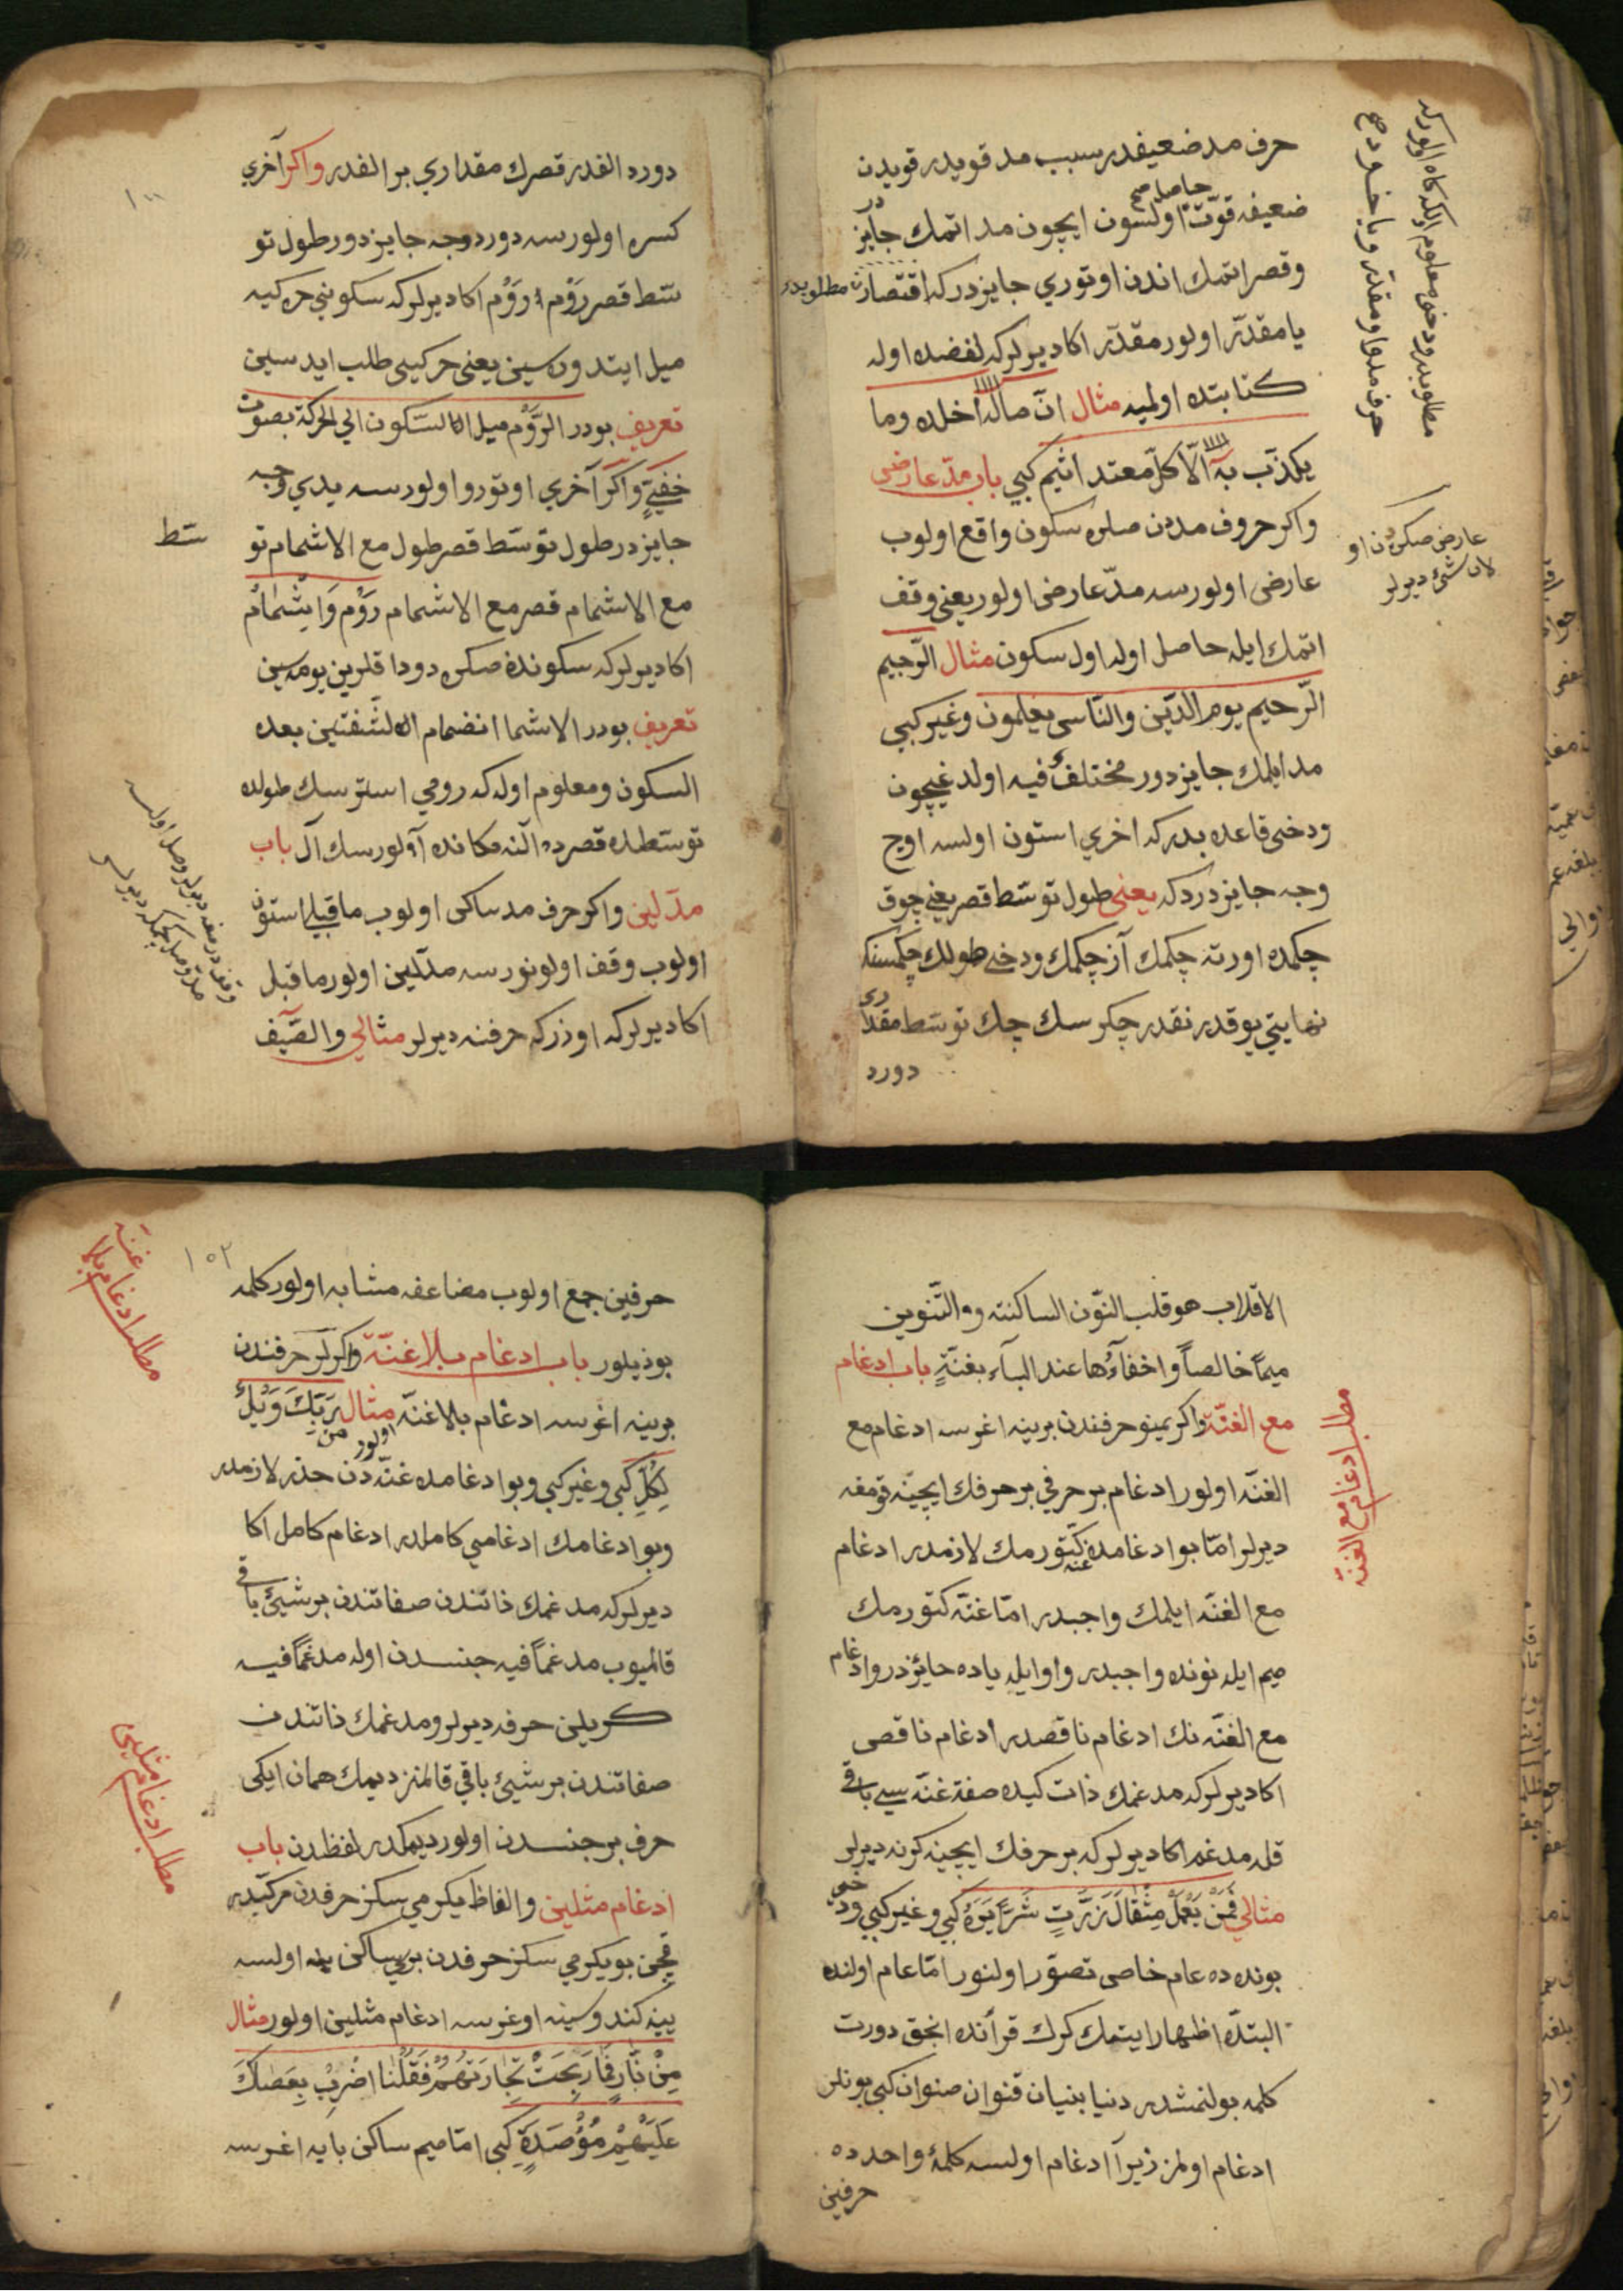 حرف مد ضعيفدر سبب مد قويدر قويدن
ضعيفه قوّت حاصل اولسون ايچون مد اتمك جايز در
وقصر اتمك اندن اوتوري جايزدركه اقتصار مطلوبدر
يا مقدّر اولور مقدّر اكا ديرلركه لفضده اوله
كتابتده اولميه مثال انّ ماله اخلده وما
يكذّب به الّا كلّ معتد اثيم كبي باب مدّ عارضى
واكر حروف مددن صكره سكون واقع اولوب
عارضى اولورسه مدّ عارضى اولور يعنى وقف
اتمك ايله حاصل اوله اول سكون مثال الرّجيم
الرّحيم يوم الدّين والنّاس يعلمون وغير كبي
مد ايلمك جايزدور مختلف فيه اولدغيچون
ودخى قاعده بدركه اخري استون اولسه اوج
وجه جايزدردكه يعنى طول توسّط قصر يعنى چوق
چكمده اورته چكمك آز چكمك ودخى طولك چكمسنكه
نهايتي يوقدر نقدر چكرسك چك توسّط مقداري
دورد
عارض صكره دن او
لان شئ ديرلر
دورد الفدر قصرك مقداري بر الفدر واكر آخري
كسره اولورسه دورد وجه جايزدور طول تو
سّط قصر رَوْم رَوْم اكا ديرلركه سكوني حركيه
ميل ايتدورسين يعنى حركيى طلب ايدسين
تعريف بودر الرَّوْم ميل السّكون الي الحركة بصوت
خفيّةٍ واكر آخري اوتورو اولورسه يدي وجه
جايزدر طول توسّط قصر طول مع الاشمام تو
سّط
مع الاشمام قصر مع الاشمام رَوْم وَاِشْمَامْ
اكا ديرلركه سكوندن صكره دوداقلرين يومه سين
تعريف بودر الاشما انضمام الشّفتين بعده
السكون ومعلوم اوله كه رومي استرسك طولده
توسّطده قصرده آلنه مكانده آلورسك آل باب
مدّ لين واكر حرف مد ساكن اولوب ماقبلي استون
اولوب وقف اولونورسه مدّ لين اولور ماقبل
اكا ديرلركه اوزركه حرفنه ديرلر مثالي والصّيف
الاقلاب هو قلب النّون الساكنته والتّنوين
ميماً خالصاً واخفآءها عند البآء بغنّةٍ باب ادغام
مع الغنّة واكر يمنو حرفندن برينه اغرسه ادغام مع
الغنّه اولور ادغام بر حرفي بر حرفك ايچينه قومغه
ديرلر امّا بو ادغامده غنّه كتورمك لازمدر ادغام
مع الغنّه ايلمك واجبدر امّا غنّه كتورمك
ميم ايله نونده واجبدر واو ايله ياده جايزدر وادغام
مع الغنّه نك ادغام ناقصدر ادغام ناقصى
اكا ديرلركه مدغمك ذات كيده صفة غنّه سي باقي
قله مدغم اكا ديرلركه بر حرفك ايچينه كرنه ديرلر
مثالي فَمَنْ يَعْمَلْ مِثْقَالَ ذَرَّتٍ شَرًّا يَرَهُ كبي وغير كبي ودخى
بونده ده عام خاصى تصوّر اولنور امّا عام اولنده
البتّه اظهار ايتمك كرك قرأنده انجق دورت
كلمه بولنمشدر دنيا بنيان قنوان صنوان كبي بونلر
ادغام اولمز زيرآ ادغام اولسه كلمۀ واحد ده
حرفين
مطلب ادغام مع الغنّه
١٠٢
حرفين جمع اولوب مضاعفه مشابه اولور كلمه
بوذيلور باب ادغام بلا غنّة واكر لر حرفندن
برينه اغرسه ادغام بلا غنّه اولور مثال مِن رَبِّكَ وَيْلٌ
لِكُلِّ كبي وغير كبي وبو ادغامده غنّه دن حذر لازمدر
وبو ادغامك ادغامي كاملدر ادغام كامل اكا
ديرلركه مدغمك ذاتندن صفاتندن بر شيئ باقي
قالميوب مدغماً فيه جنسدن اوله مدغماً فيه
كريلن حرفه ديرلر ومدغمك ذاتندن
صفاتندن بر شيئ باقي قالمز ديمك همان ايكى
حرف بر جنسدن اولور ديمكدر لفظدن باب
ادغام مثلين والفاظ يكرمي سكز حرفدن مركّبدر
قچن بو يكرمي سكز حرفدن بري ساكن اولسه
ينه كندوسينه اوغرسه ادغام مثلين اولور مثال
مِنْ نَّارٍ فَمَا رَبِحَتْ تِجَارَتُهُمْ فَقُلْنَا اضْرِبْ بِعَصَاكَ
عَلَيْهِمْ مُؤْصَدَةٌ كبي امّا ميم ساكن بايه اغرسه
مطلب ادغام بلا غنّه
مطلب ادغام مثلين